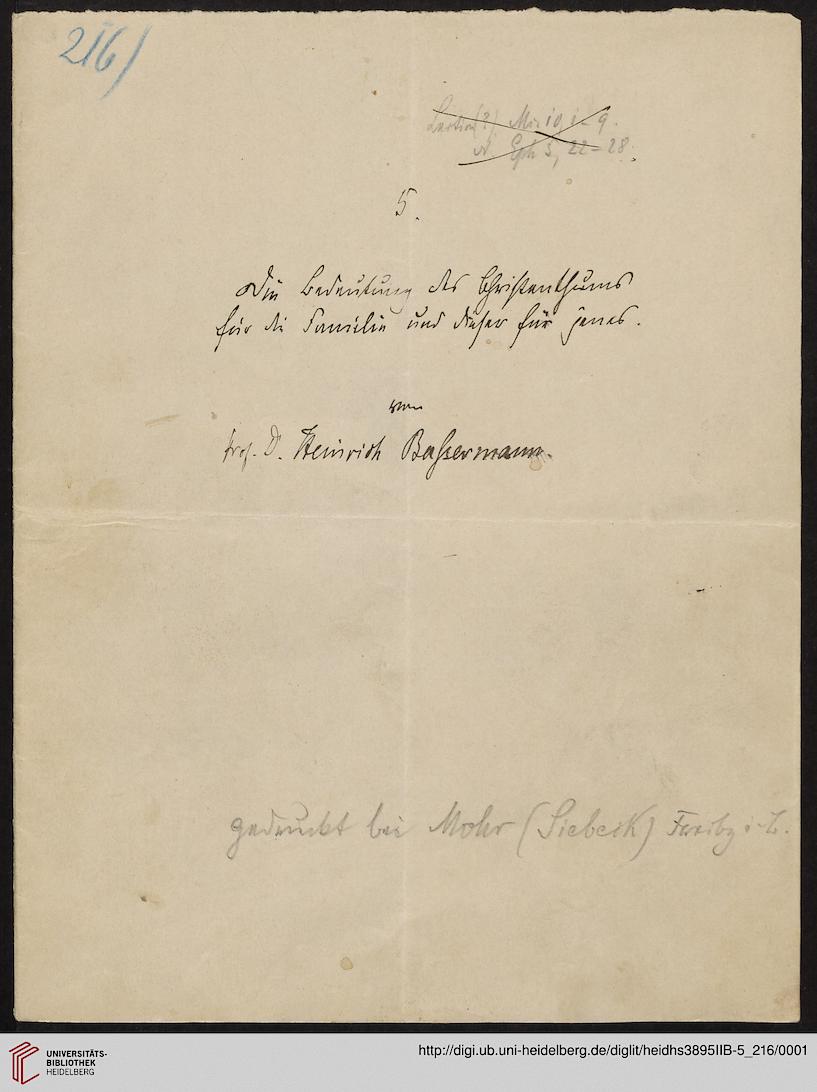 216)
Eph 5, 22-28.
5.
Die Bedeutung des Christenthums
für die Familie und dieser für jenes.
von
Prof. D. Heinrich Bassermann.
gedruckt bei Mohr (Siebeck) Freibg i. B.
UNIVERSITÄTS-
BIBLIOTHEK
HEIDELBERG
http://digi.ub.uni-heidelberg.de/diglit/heidhs3895IIB-5_216/0001